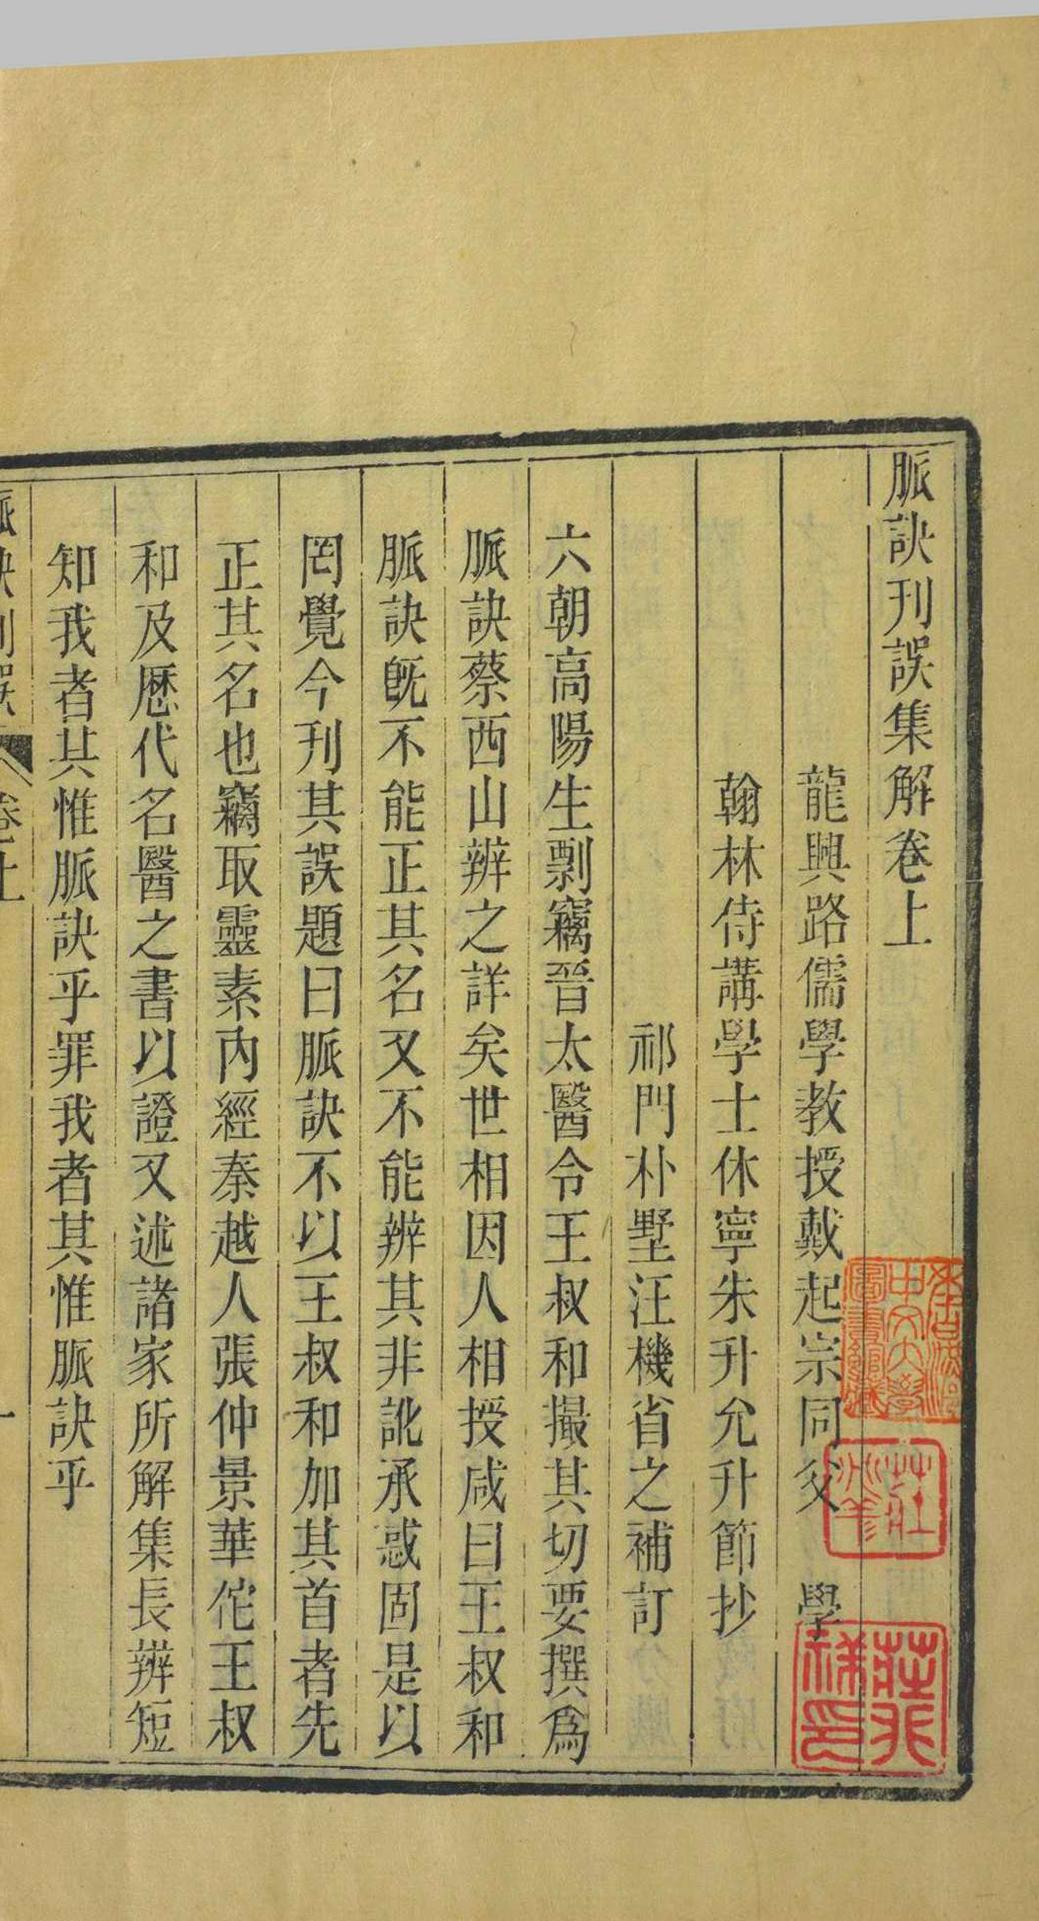 脈訣刊誤集解卷上
龍興路儒學教授戴起宗同父學
翰林侍講學士休寧朱升允升節抄
祁門朴墅汪機省之補訂
六朝高陽生剽竊晉太醫令王叔和撮其切要撰爲
脈訣蔡西山辨之詳矣世相因人相授咸曰王叔和
脈訣旣不能正其名又不能辨其非訛承惑固是以
罔覺今刊其誤題曰脈訣不以王叔和加其首者先
正其名也竊取靈素內經秦越人張仲景華佗王叔
和及歷代名醫之書以證又述諸家所解集長辨短
知我者其惟脈訣乎罪我者其惟脈訣乎
脈訣刊誤 卷上 一